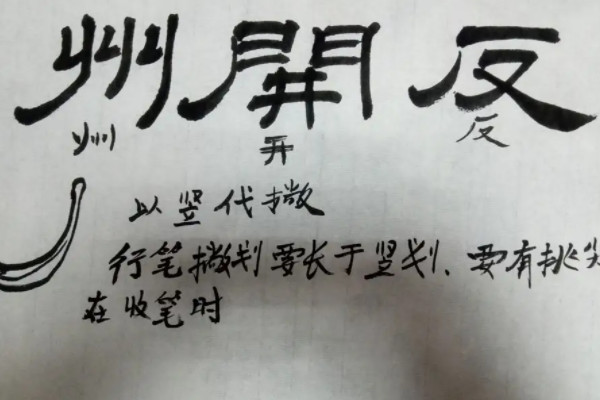 州開反
州 开 反
以竖代撇
行笔撇划要长于竖划、要有挑尖
在收笔时